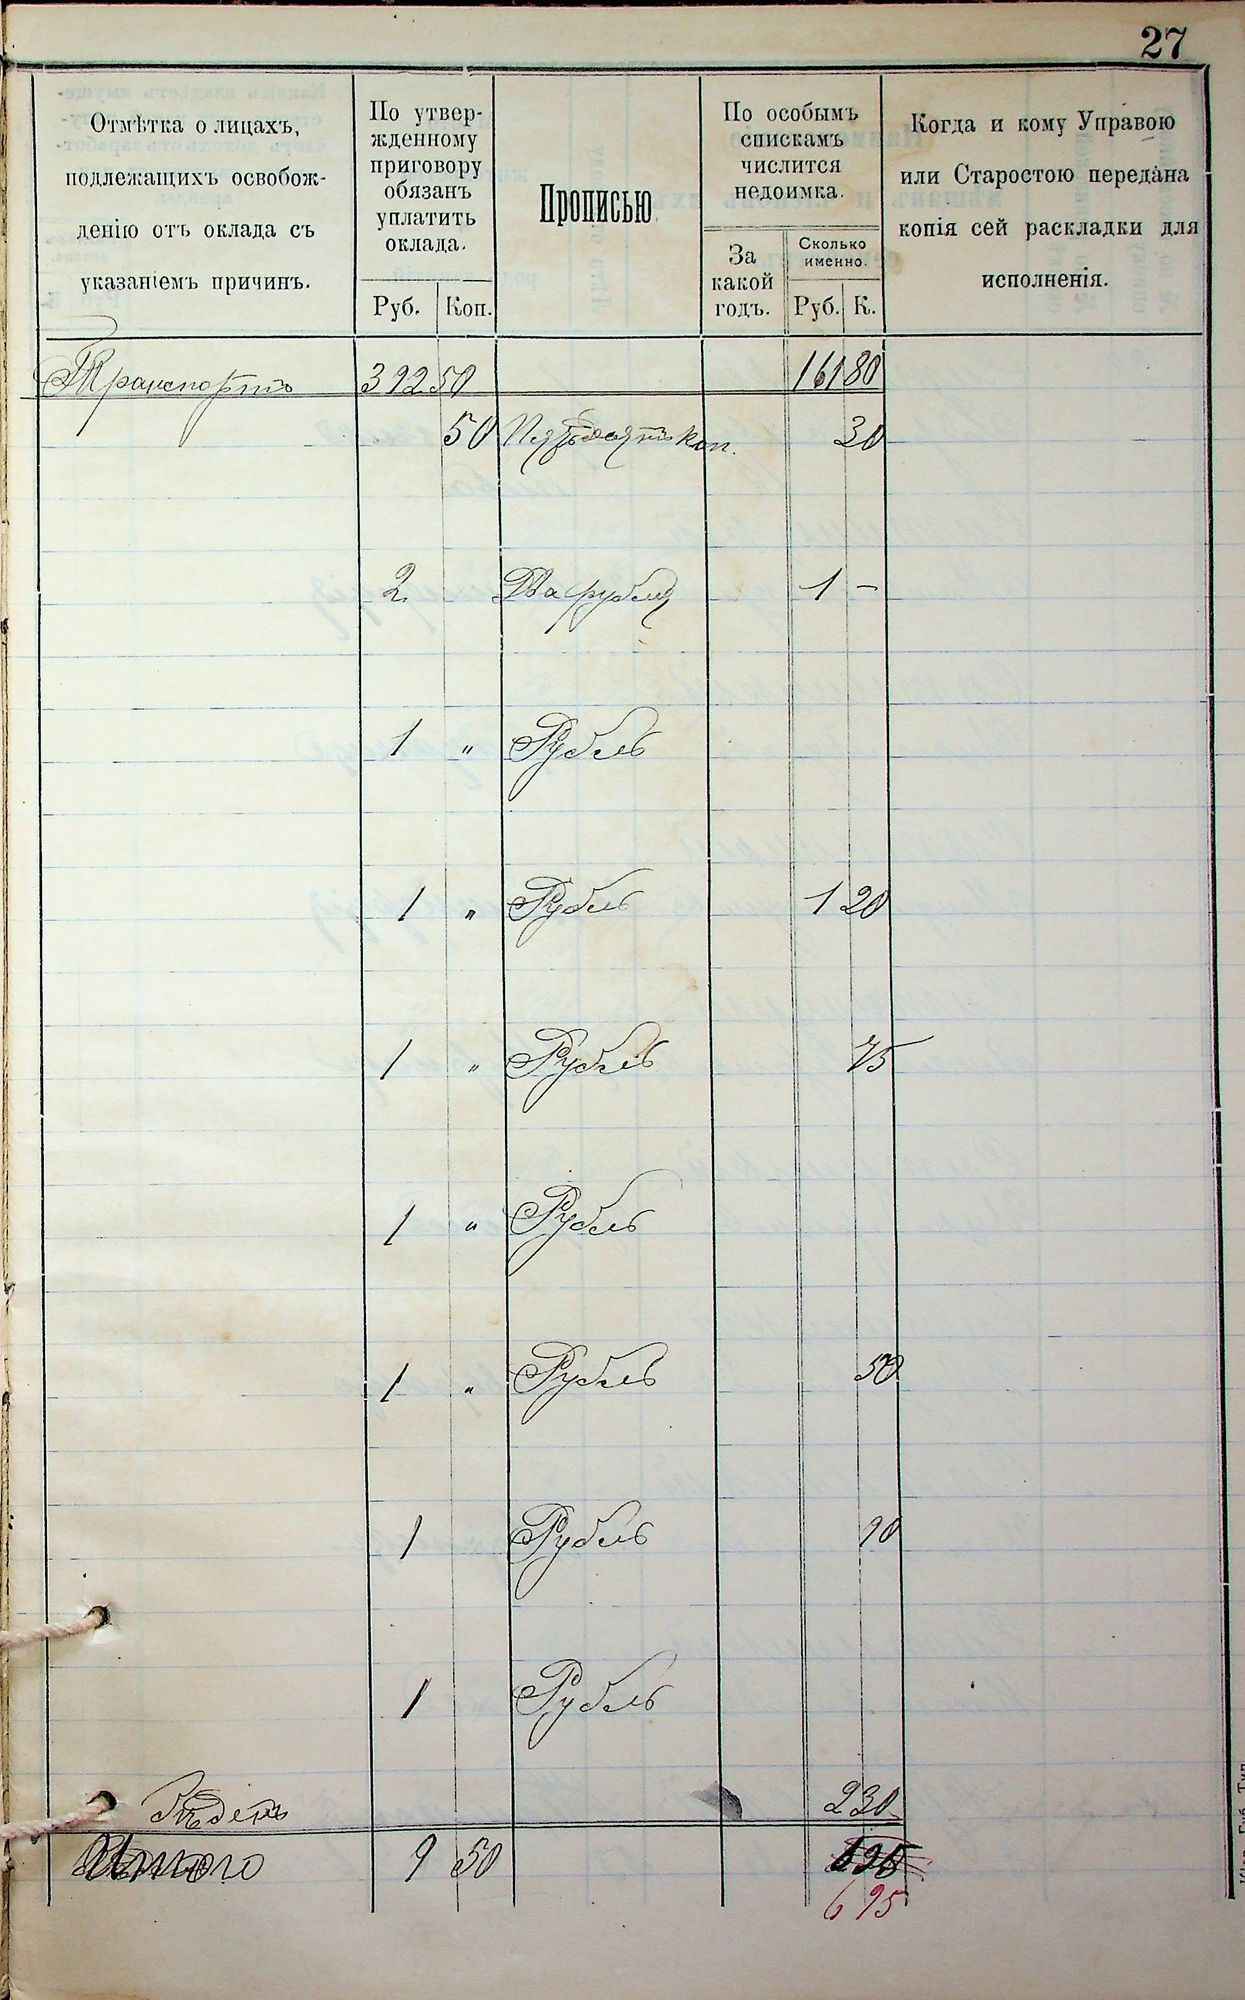 27
Отмѣтка о лицахъ,
подлежащихъ освобож-
денію отъ оклада съ
указаніемъ причинъ.
По утвер-
жденному
приговору
обязанъ
уплатить
оклада.
Руб. Коп.
Прописью.
По особымъ
спискамъ
числится
недоимка.
За
какой
годъ.
Сколько
именно.
Руб. К.
Когда и кому Управою
или Старостою передана
копія сей раскладки для
исполненія.
Транспортъ 392 50 161 80
50 Пятьдесятъ коп. 30
2 Два рубля 1 —
1 „ Рубль
1 „ Рубль 1 20
1 „ Рубль 75
1 „ Рубль
1 „ Рубль 50
1 Рубль 90
1 Рубль
2 30
Итого 9 50
6 95